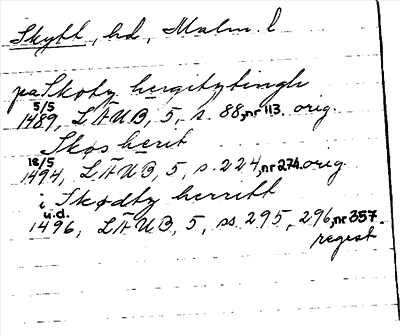 Skytt, hd, Malm. l
pa Skøty hergitztingh
5/5
1489, LÄUB, 5, s. 88, nr 113. orig.
Skøs herit
18/5
1494, LÄUB, 5, s. 224, nr 274. orig
i Skødty herritt
u.d.
1496, LÄUB, 5, ss. 295, 296, nr 357.
regest